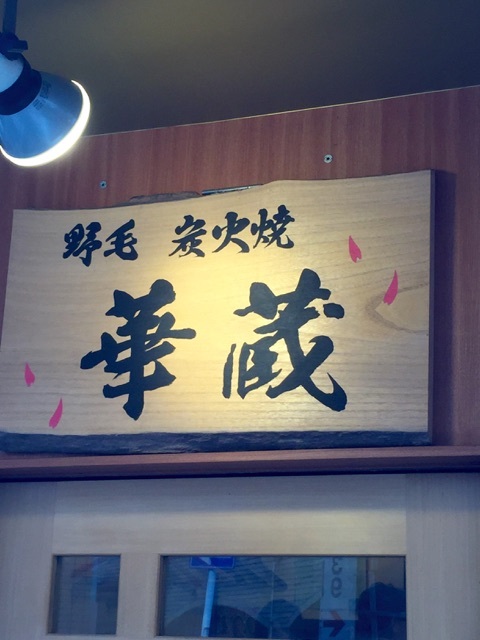 野毛 炭火焼
華蔵
39